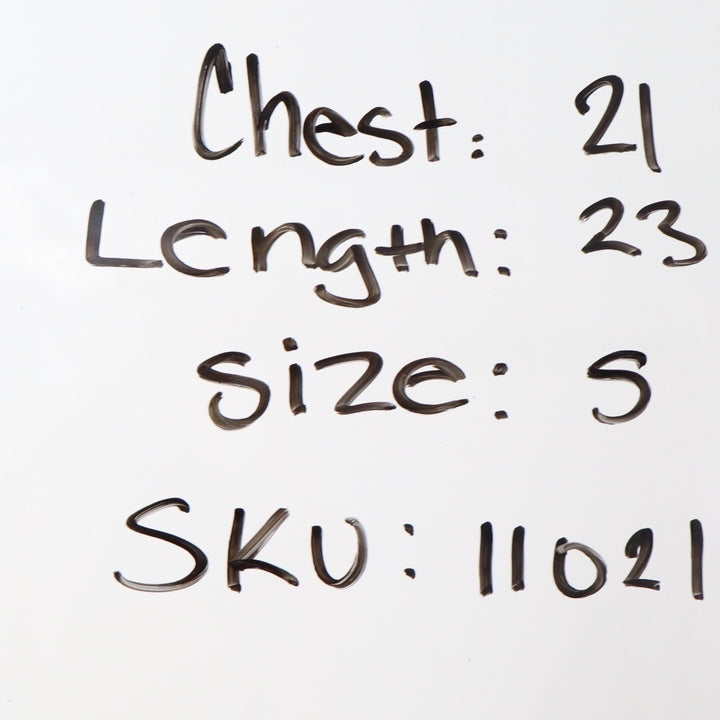 Chest: 21
Length: 23
Size: S
SKU: 11021